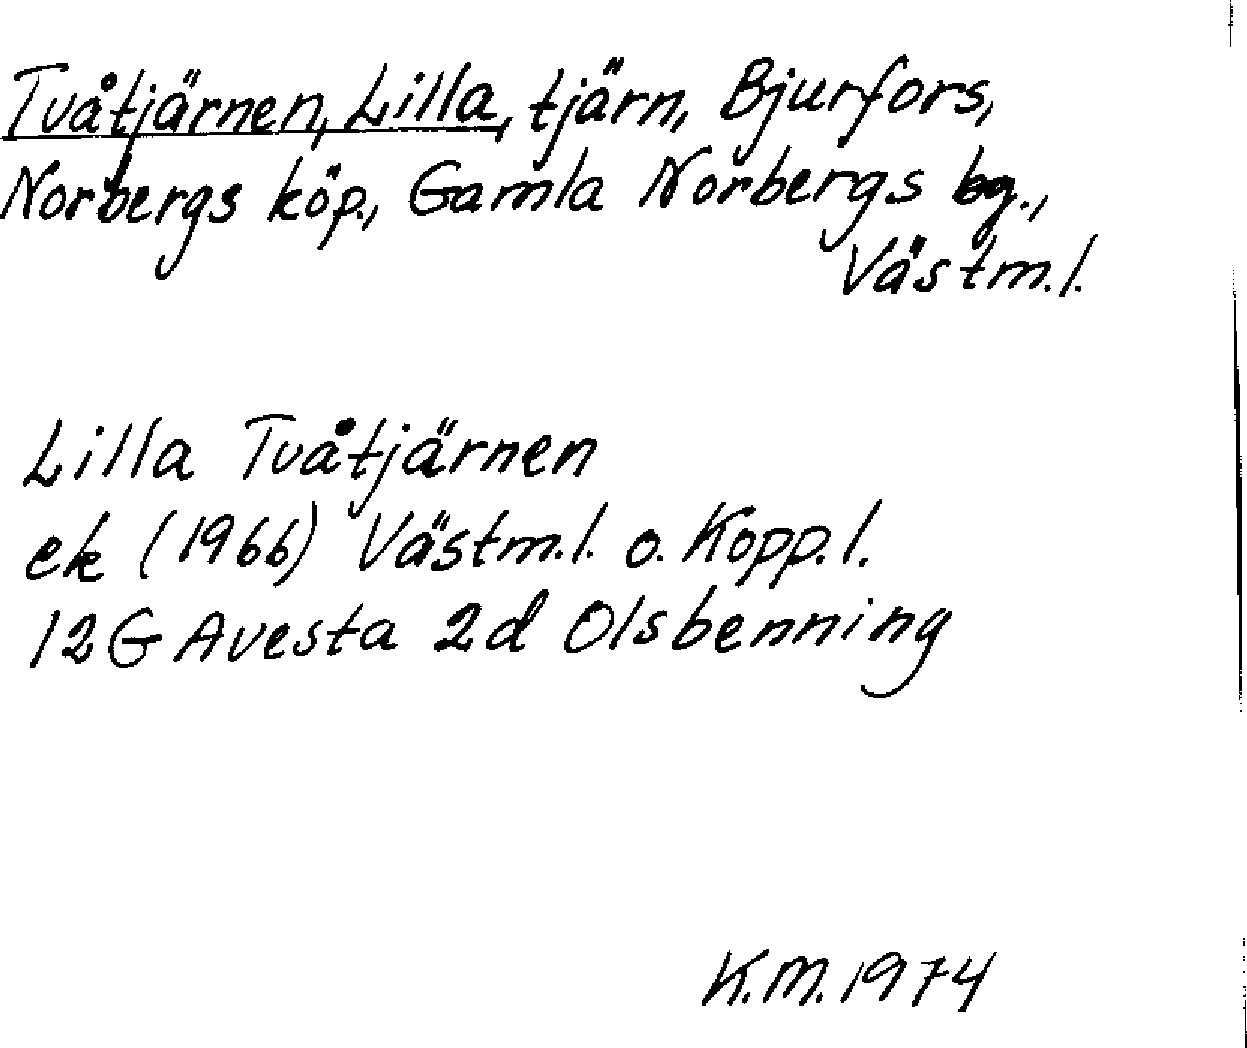 Tvåtjärnen, Lilla, tjärn, Bjurfors,
Norbergs köp., Gamla Norbergs bg.,
Västm.l.
Lilla Tvåtjärnen
ek (1966) Västm.l. o. Kopp.l.
12G Avesta 2d Olsbenning
K.M. 1974